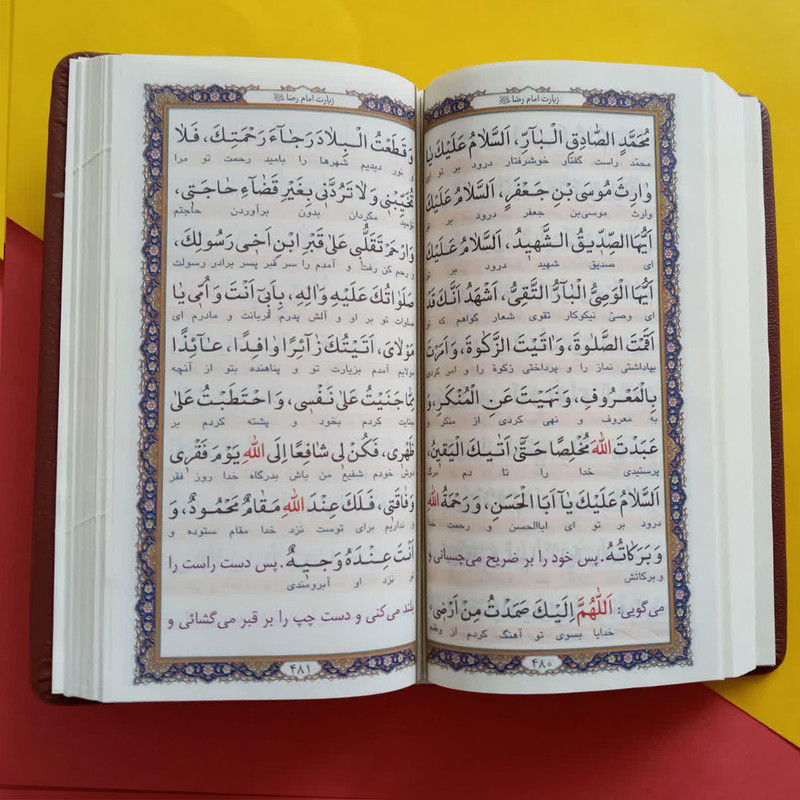 زیارت امام رضا ﷺ
مُحَمَّدٍ الصّادِقِ الْبآرِّ، اَلسَّلامُ عَلَیْكَ یا
محمّد راست گفتار خوشرفتار درود بر تو ای
وارِثَ مُوسَی بْنِ جَعْفَرٍ، اَلسَّلامُ عَلَیْكَ
وارث موسی‌بن جعفر درود بر تو
اَیُّهَا الصِّدّیقُ الشَّهیدُ، اَلسَّلامُ عَلَیْكَ
ای صدیق شهید درود بر تو
اَیُّهَا الْوَصِیُّ الْبآرُّ التَّقِیُّ، اَشْهَدُ اَنَّكَ قَدْ
ای وصیّ نیکوکار تقوی شعار گواهم که تو
اَقَمْتَ الصَّلوةَ، وَ اتَیْتَ الزَّکوةَ، وَ اَمَرْتَ
بپاداشتی نماز را و پرداختی زکوة را و امر کردی
بِالْمَعْرُوفِ، وَ نَهَیْتَ عَنِ الْمُنْکَرِ، وَ
به معروف و نهی کردی از منکر و
عَبَدْتَ اللهَ مُخْلِصًا حَتّی اَتیكَ الْیَقینُ،
پرستیدی خدا را تا دم مرگ
اَلسَّلامُ عَلَیْكَ یا اَبَا الْحَسَنِ، وَ رَحْمَةُ اللهِ
درود بر تو ای اباالحسن و رحمت خدا
وَ بَرَکاتُهُ. پس خود را بر ضریح می‌چسبانی و
و برکاتش
می‌گویی: اَللّهُمَّ اِلَیْكَ صَمَدْتُ مِنْ اَرْضی،
خدایا بسوی تو آهنگ کردم از وطنم
۴۸۰
زیارت امام رضا ﷺ
وَ قَطَعْتُ الْبِلادَ رَجآءَ رَحْمَتِكَ، فَلا
و نور دیدیم شهرها را بامید رحمت تو مرا
تُخَیِّبْنی وَ لا تَرُدَّنی بِغَیْرِ قَضآءِ حاجَتی،
نومید مگردان بدون برآوردن حاجتم
وَ ارْحَمْ تَقَلُّبی عَلی قَبْرِ ابْنِ اَخی رَسُولِكَ،
و رحم کن رفتنا و آمدم را سر قبر پسر برادر رسولت
صَلَواتُكَ عَلَیْهِ وَ الِهِ، بِاَبی اَنْتَ وَ اُمّی یا
صلوات تو بر او و آلش پدرم قربانت و مادرم ای
مَوْلایَ، اَتَیْتُكَ زآئِرًا وافِدًا، عآئِذًا
مولایم آمدم بزیارت تو و پناهنده بتو از آنچه
مِمّا جَنَیْتُ عَلی نَفْسی، وَ احْتَطَبْتُ عَلی
جنایت کردم بخود و پشته کردم بر
ظَهْری، فَکُنْ لی شافِعًا اِلَی اللهِ یَوْمَ فَقْری
دوش خودم شفیع من باش بدرگاه خدا روز فقر
وَ فاقَتی، فَلَكَ عِنْدَ اللهِ مَقامٌ مَحْمُودٌ، وَ
و نداریم برای توست نزد خدا مقام ستوده و
اَنْتَ عِنْدَهُ وَجیهٌ. پس دست راست را
تو نزد او آبرومندی
بلند می‌کنی و دست چپ را بر قبر می‌گشائی و
۴۸۱